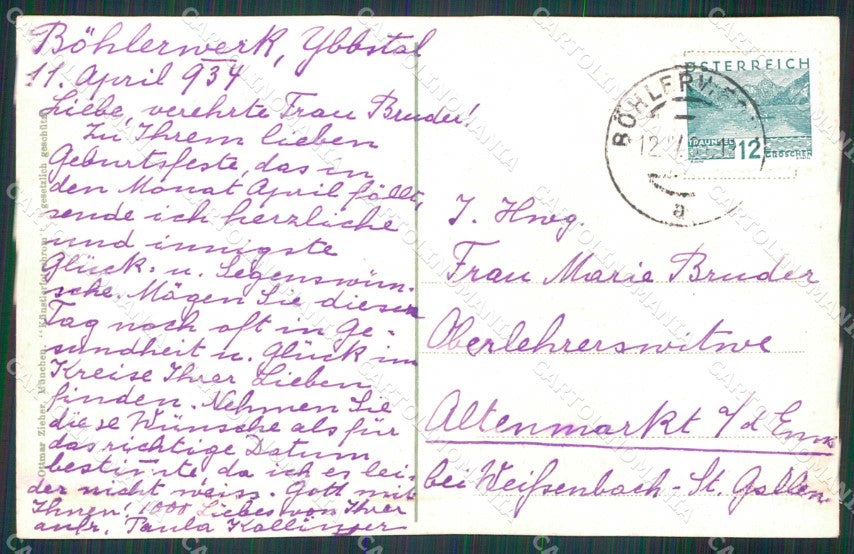 Böhlerwerk, Ybbstal
11. April 934
Liebe, verehrte Frau Bruder!
Zu Ihrem lieben
Geburtsfeste, das in
den Monat April fällt,
sende ich herzliche
und innigste
Glück- u. Segenswün-
sche. Mögen Sie diesen
Tag noch oft in Ge-
sundheit u. Glück im
Kreise Ihrer Lieben
finden. Nehmen Sie
diese Wünsche als für
das richtige Datum
bestimmte, da ich es lei-
der nicht weiss. Gott mit
Ihnen! 1000 Liebes von Ihrer
aufr. Paula Kallinger
Ottmar Zieher, München. "Künstlerlichtchrom" gesetzlich geschützt
ÖSTERREICH
TRAUNSEE
12 GROSCHEN
BÖHLERWERK
12.IV.
a
I. Hwg.
Frau Marie Bruder
Oberlehrerswitwe
Altenmarkt a/d Enns
bei Weißenbach-St. Gallen.
CARTOLINOMANIA